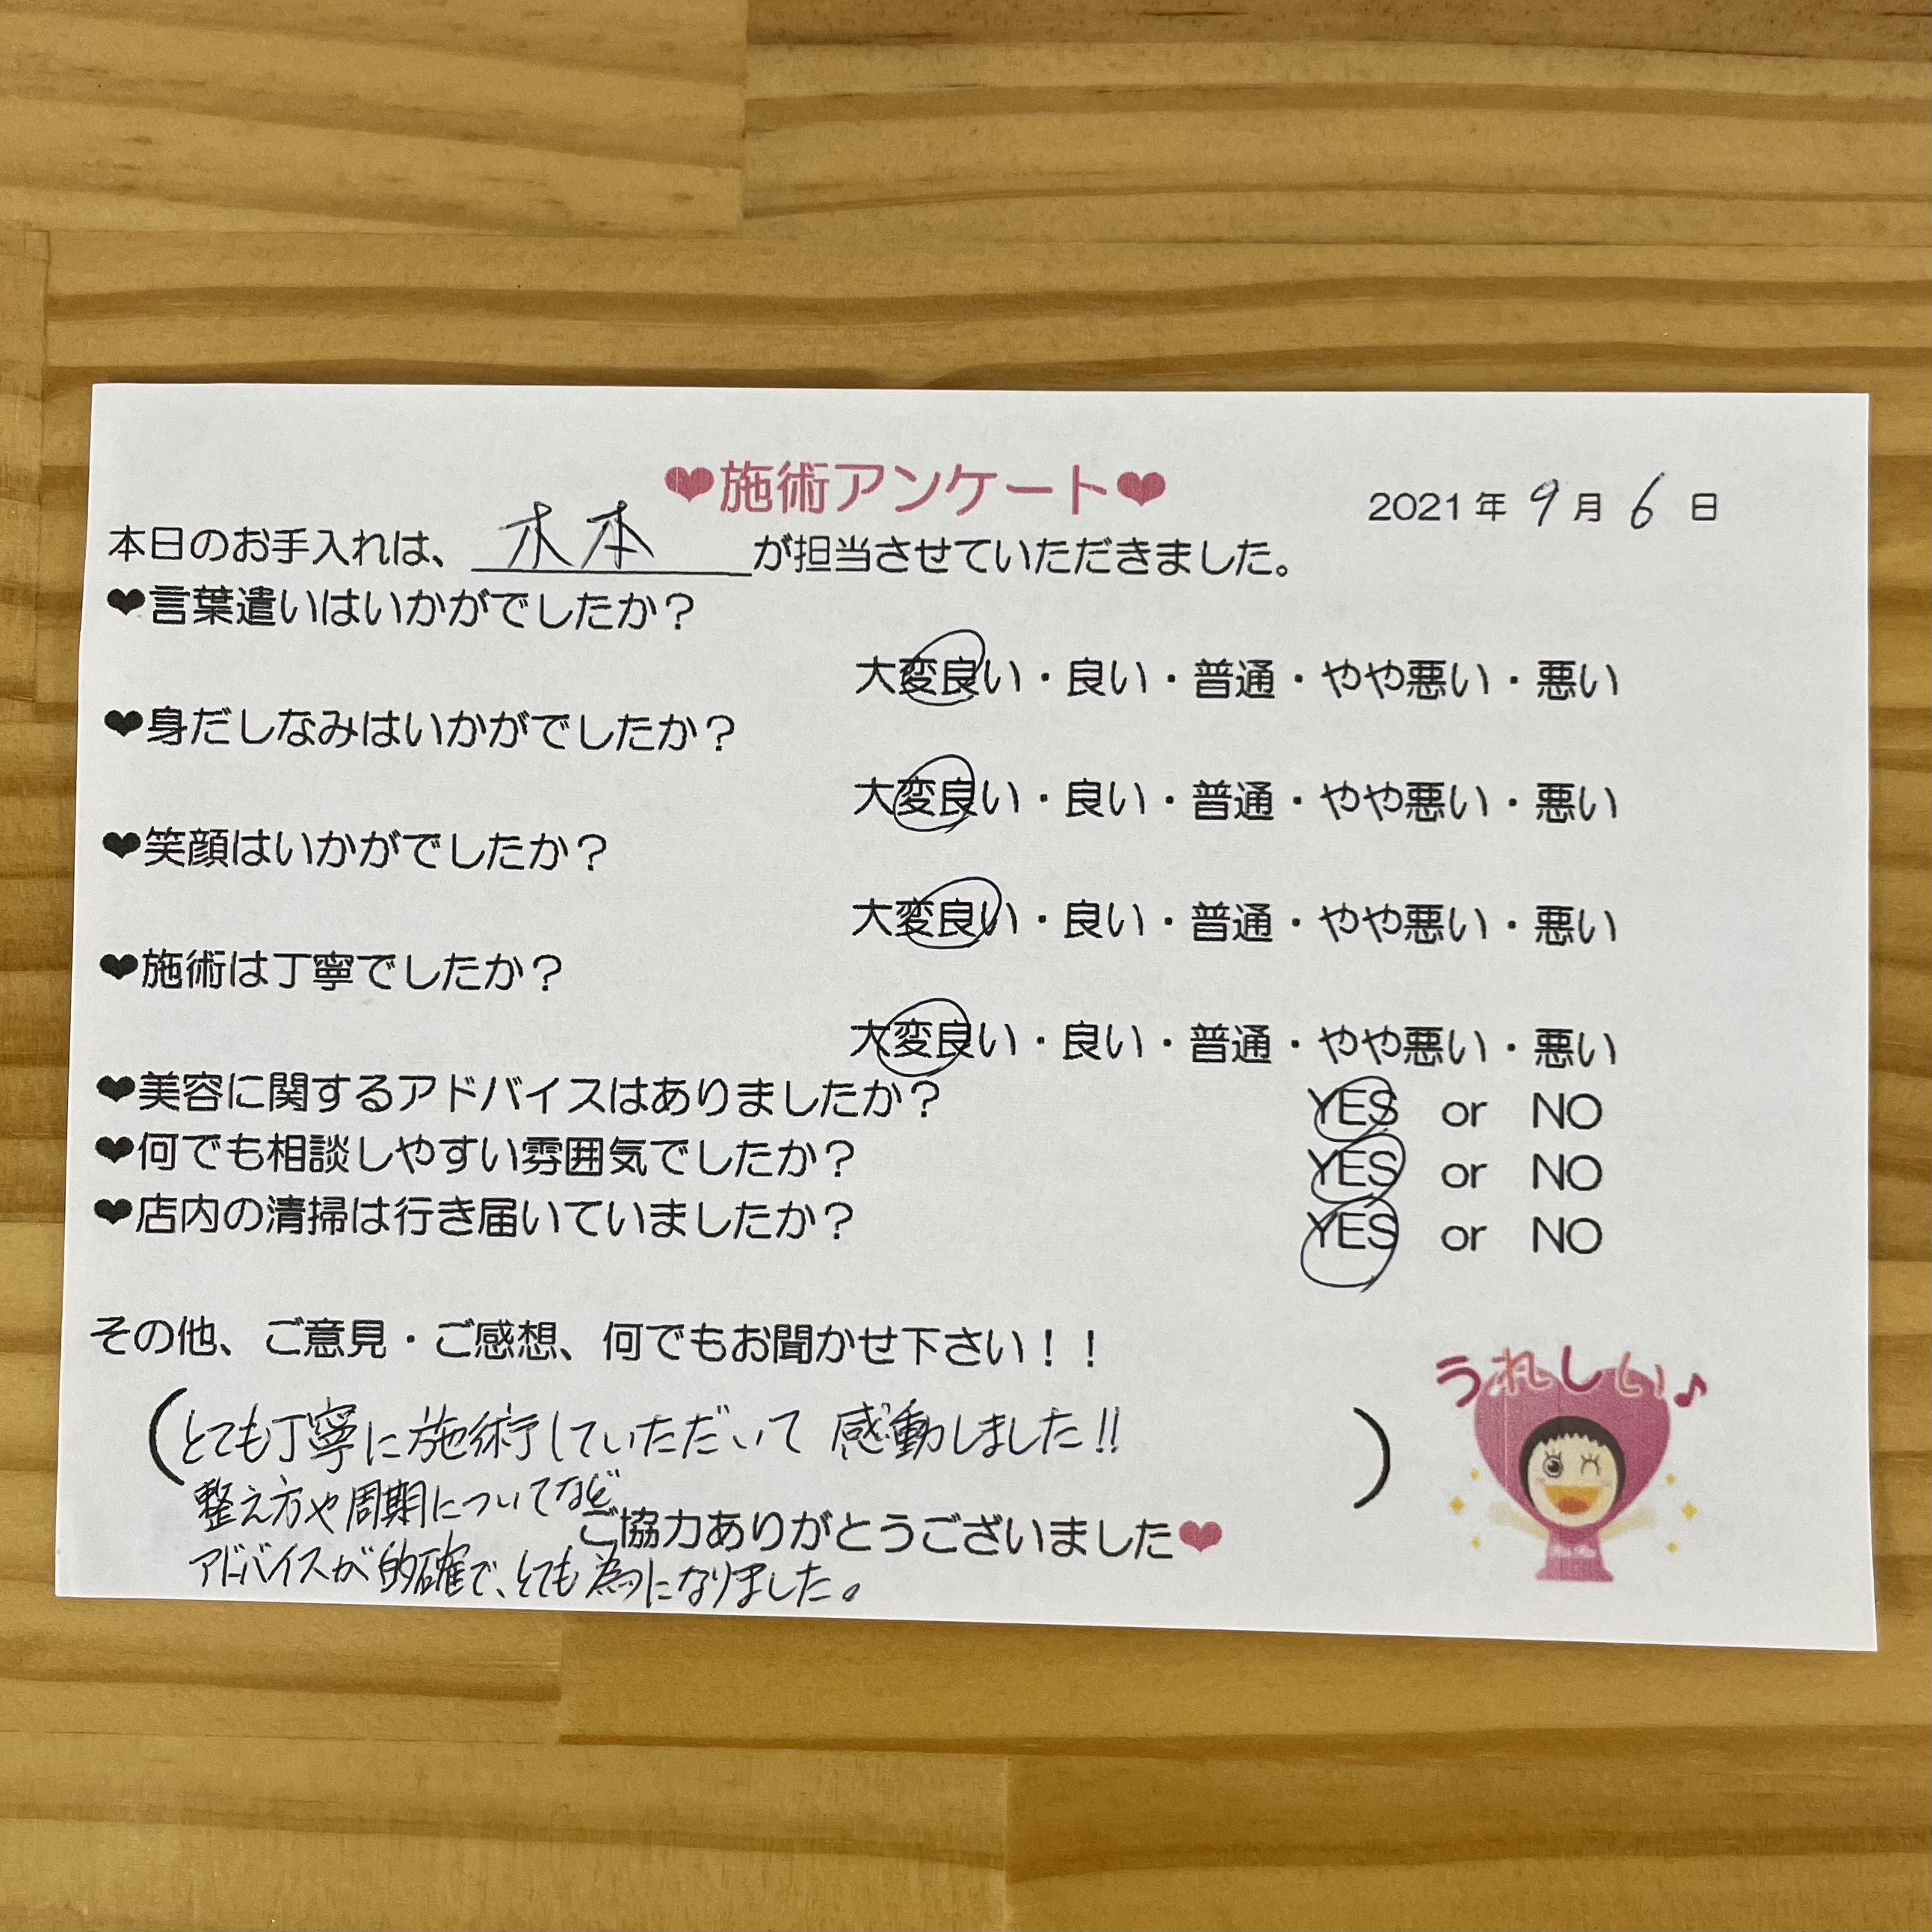 ❤施術アンケート❤
2021年 9月 6日
本日のお手入れは、木本が担当させていただきました。
❤言葉遣いはいかがでしたか？
大変良い・良い・普通・やや悪い・悪い
❤身だしなみはいかがでしたか？
大変良い・良い・普通・やや悪い・悪い
❤笑顔はいかがでしたか？
大変良い・良い・普通・やや悪い・悪い
❤施術は丁寧でしたか？
大変良い・良い・普通・やや悪い・悪い
❤美容に関するアドバイスはありましたか？ YES or NO
❤何でも相談しやすい雰囲気でしたか？ YES or NO
❤店内の清掃は行き届いていましたか？ YES or NO
その他、ご意見・ご感想、何でもお聞かせ下さい！！
うれしい♪
(とても丁寧に施術していただいて 感動しました!!)
整え方や周期についてなど
ご協力ありがとうございました❤
アドバイスが的確で、とても為になりました。